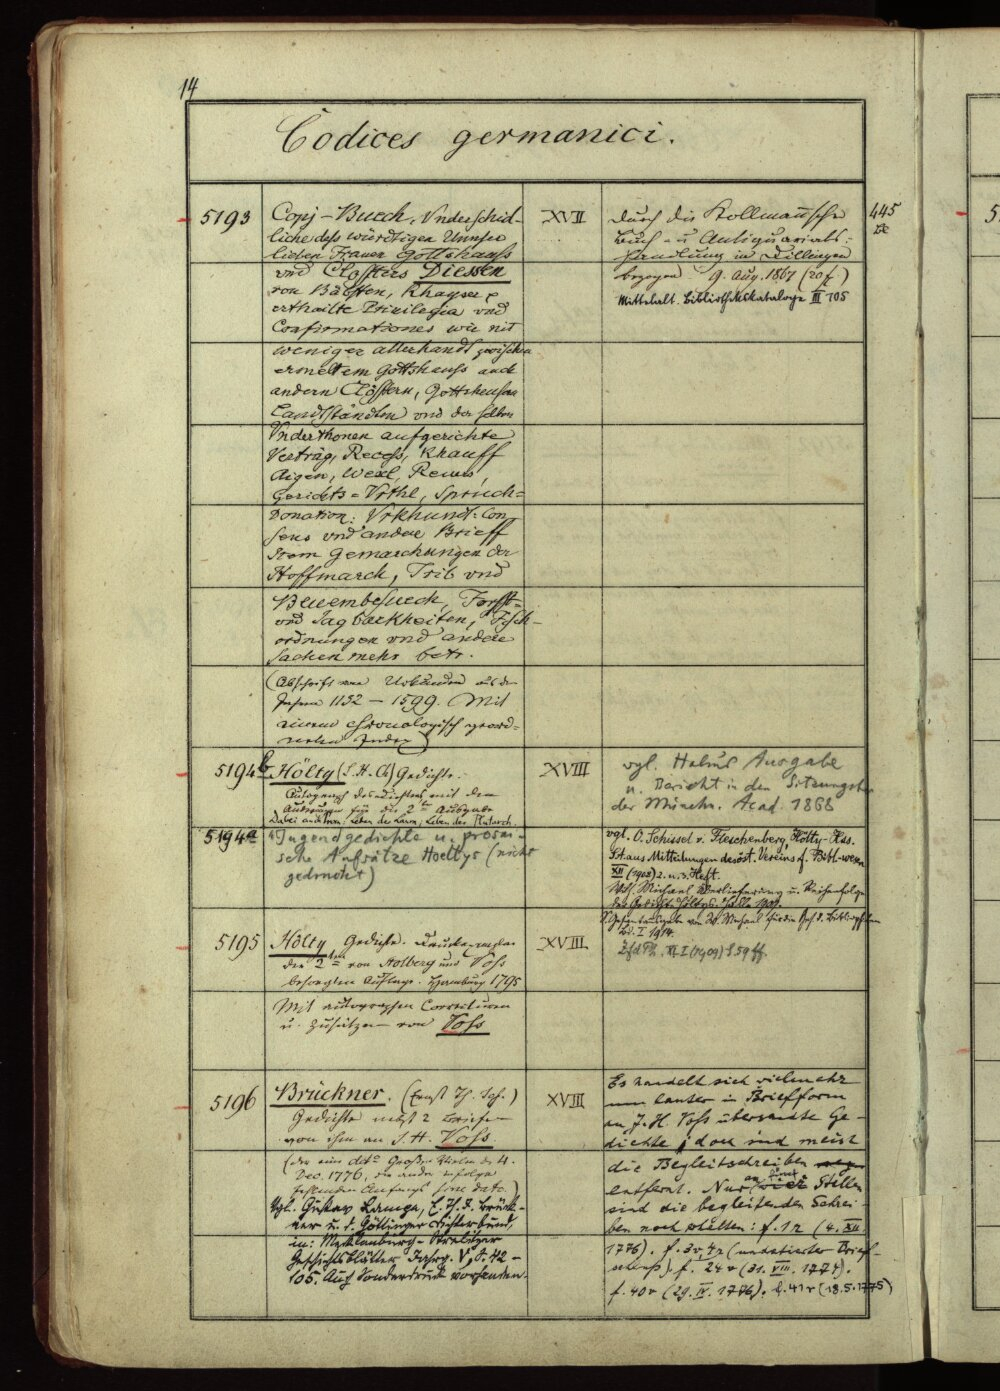 14
Codices germanici.
5193
Copj-Buech, Vnderschid-
liche dess würdigen Vnnser
lieben Frauen Gottshauss
vnd Closters Diessen
von Bäbsten, Khayser
erthailte Privilegia vnd
Confirmationes wie nit
weniger allerhandt zwischen
ermeltem Gottshauss auch
andern Clöstern, Gottsheusern
Landtständten vnd der selben
Vnderthonen aufgerichte
Verträg, Recess, Khauff
Aigen, Wexl, Revers,
Gerichts-Vrthl, Spruch-
Donation: Vrkhundt: Con
sens vnd andere Brieff
Item Gemarchungen der
Hoffmarch, Trib vnd
Bluembesuech, Forsst-
vnd Jagbarkheiten, Fisch-
ordnungen vnd andere
Sachen mehr betr.
(Abschrift von Urkunden aus den
Jahren 1132 – 1599. Mit
einem chronologisch geord-
neten Index)
XVII
Durch die Kollmann'sche
Buch- u Antiquariats-
handlung in Dillingen
bezogen 9. Aug. 1867 (20 f.)
Mittelalt. Bibliothekskataloge III 105
445
5194b
Hölty (L. H. Ch) Gedichte.
Autograph des Dichters mit den
Änderungen für die 2te Ausgabe
XVIII
vgl. Halms Ausgabe
u. Bericht in den Sitzungsber
der Münchn. Acad. 1868
5194a
Jugendgedichte u. prosai-
sche Aufsätze Hoeltys (nicht
gedruckt)
vgl. O. Schissel v. Fleschenberg, Hölty-Hss.
S.A. aus Mitteilungen des öst. Vereins f. Bibl-wesen
XII (1908) 2. u. 3. Heft.
W. Michael Überlieferung u. Reihenfolge
der Gedichte Höltys. Halle 1909.
Bd. I 1914.
ZfdPh. XLI (1909) S. 59 ff.
5195
Hölty Gedichte. Druckexemplar
der 2ten von Stolberg und Voss
besorgten Auflage. Hamburg 1795
Mit autographen Correcturen
u. Zusätzen von Voss
XVIII
5196
Brückner. (Ernst Th. Joh.)
Gedichte nebst 2 Briefen
von ihm an J. H. Voss
(der eine dto Grossen Vielen d. 4.
Dec. 1776, der andere zufolge
fehlenden Anfangs sine dato.)
Vgl. Gustav Lampe, E. Th. J. Brück-
ner u. d. Göttinger Dichterbund,
in: Mecklenburg-Strelitzer
Geschichtsblätter Jahrg. V, S. 42 –
105. Auch Sonderdruck vorhanden.
XVIII
Es handelt sich vielmehr
um lauter in Briefform
an J. H. Voss übersandte Ge-
dichte; doch sind meist
die Begleitschreiben
entfernt. Nur an fünf Stellen
sind die begleitenden Schrei-
ben noch erhalten: f. 1r (4. XII.
1776). f. 3v, 4r (undatierter Brief-
schluss). f. 24v (31. VIII. 1774).
f. 40v (29. IV. 1776). f. 41r (18.5.1775)